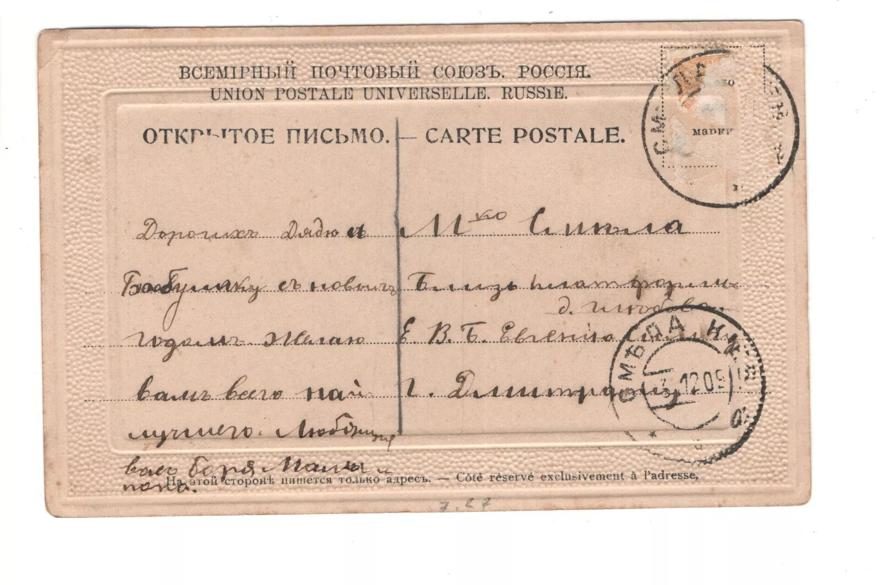 ВСЕМІРНЫЙ ПОЧТОВЫЙ СОЮЗЪ. РОССІЯ.
UNION POSTALE UNIVERSELLE. RUSSIE.
ОТКРЫТОЕ ПИСЬМО. — CARTE POSTALE.
МАРКИ
Дорогихъ Дядю и
Бабушку съ новымъ
годомъ желаю
вамъ всего най
лучшего. Любящие
васъ Боря Мама и
папа.
М-ко Смѣла
Близь платформы
Е. В. Б. Евгению
г. Дмитр
СМѢЛА КІЕВ
3.12.09
На этой сторонѣ пишется только адресъ. — Côté réservé exclusivement à l'adresse.
7.27